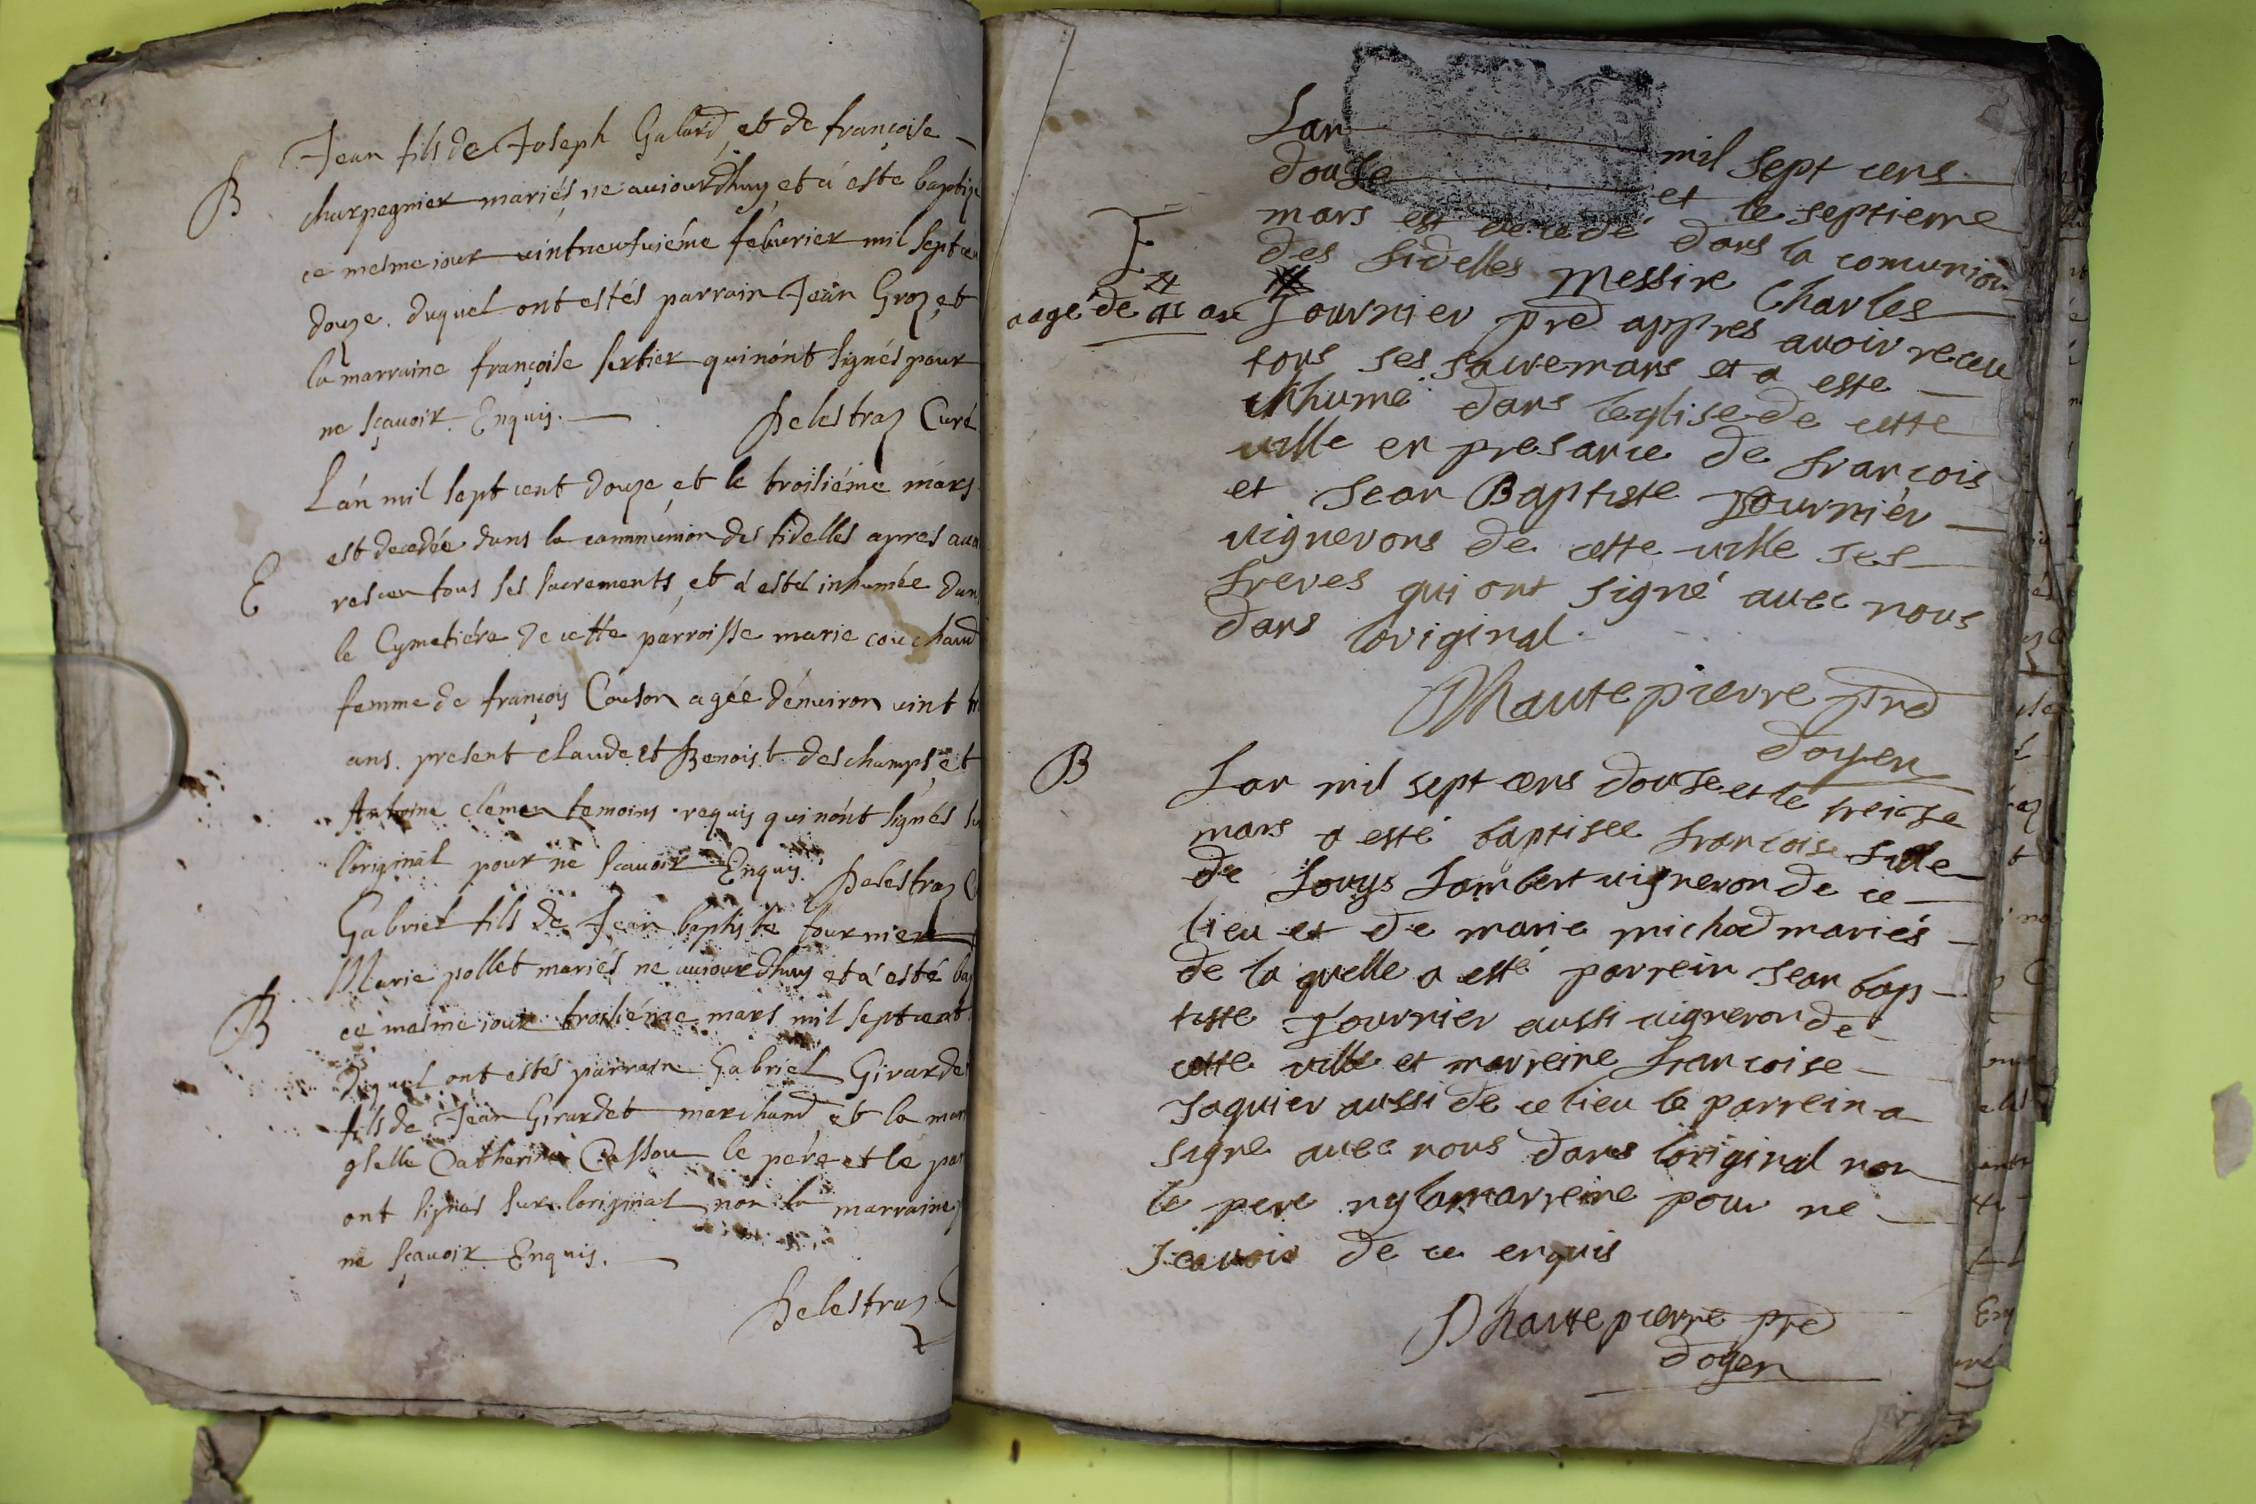 Jean fils de Joseph Galard, et de françoise
B
charpegnier mariés, ne aujourdhuy et a esté baptizé
ce mesme jour vintneufuiéme feburier mil sept cen
douze. duquel ont estés parrain Jean Groz, et
la marraine françoise serbier qui nónt signés pour
ne sçauoir. Enquis.
Delestraz Curé
Lán mil sept cent douze et le troisiéme márs
est decedée dans la communion des fidelles apres auo
E
resceu tous ses sacrements, et a esté inhumée dans
le Cymetiére de cette parroisse marie couchaud
femme de françois Couson agée dénuiron vint
ans. present claude et Benoist deschamps, et
Antoine clémen temoins requis qui nónt signés su
loriginal pour ne scauoir Enquis.
Delestraz C
Gabriel fils de Jean baptiste fournier
Marie pollet mariés ne aujourdhuy et a esté bap
B
ce mesme jour troisiéme mars mil sept cent
Duquel ont estés parrain Gabriel Girardet
fils de Jean Girardet marchand, et la mar
glelle Catherine Cassou le pére et le par
ont signés sur loriginal non la marraine
ne sçauoir Enquis.
Delestraz C
Lan mil sept cens
douse et le septieme
mars est decedé dans la comunion
des fidelles messire Charles
E
aagé de ans
fournier pre appres auoir receu
tous ses sacremans et a esté
inhumé dans leglise de cette
ville en presance de francois
et Jean Baptiste fournier
vignerons de cette ville ses
freres qui ont signé auec nous
dans loriginal.
Dhautepierre pre
doyen
B
Lan mil sept cens douse et le treisse
mars a esté baptisee francoise fille
de Louys Lambert vigneron de ce
lieu et de marie michod mariés
de la quelle a esté parrein Jean bap
tiste fournier aussi vigneron de
cette ville et marreine francoise
Jaquier aussi de ce lieu le parrein a
signe auec nous dans loriginal non
le pere ny la marreine pour ne
scauoir de ce enquis
Dhautepierre pre
doyen